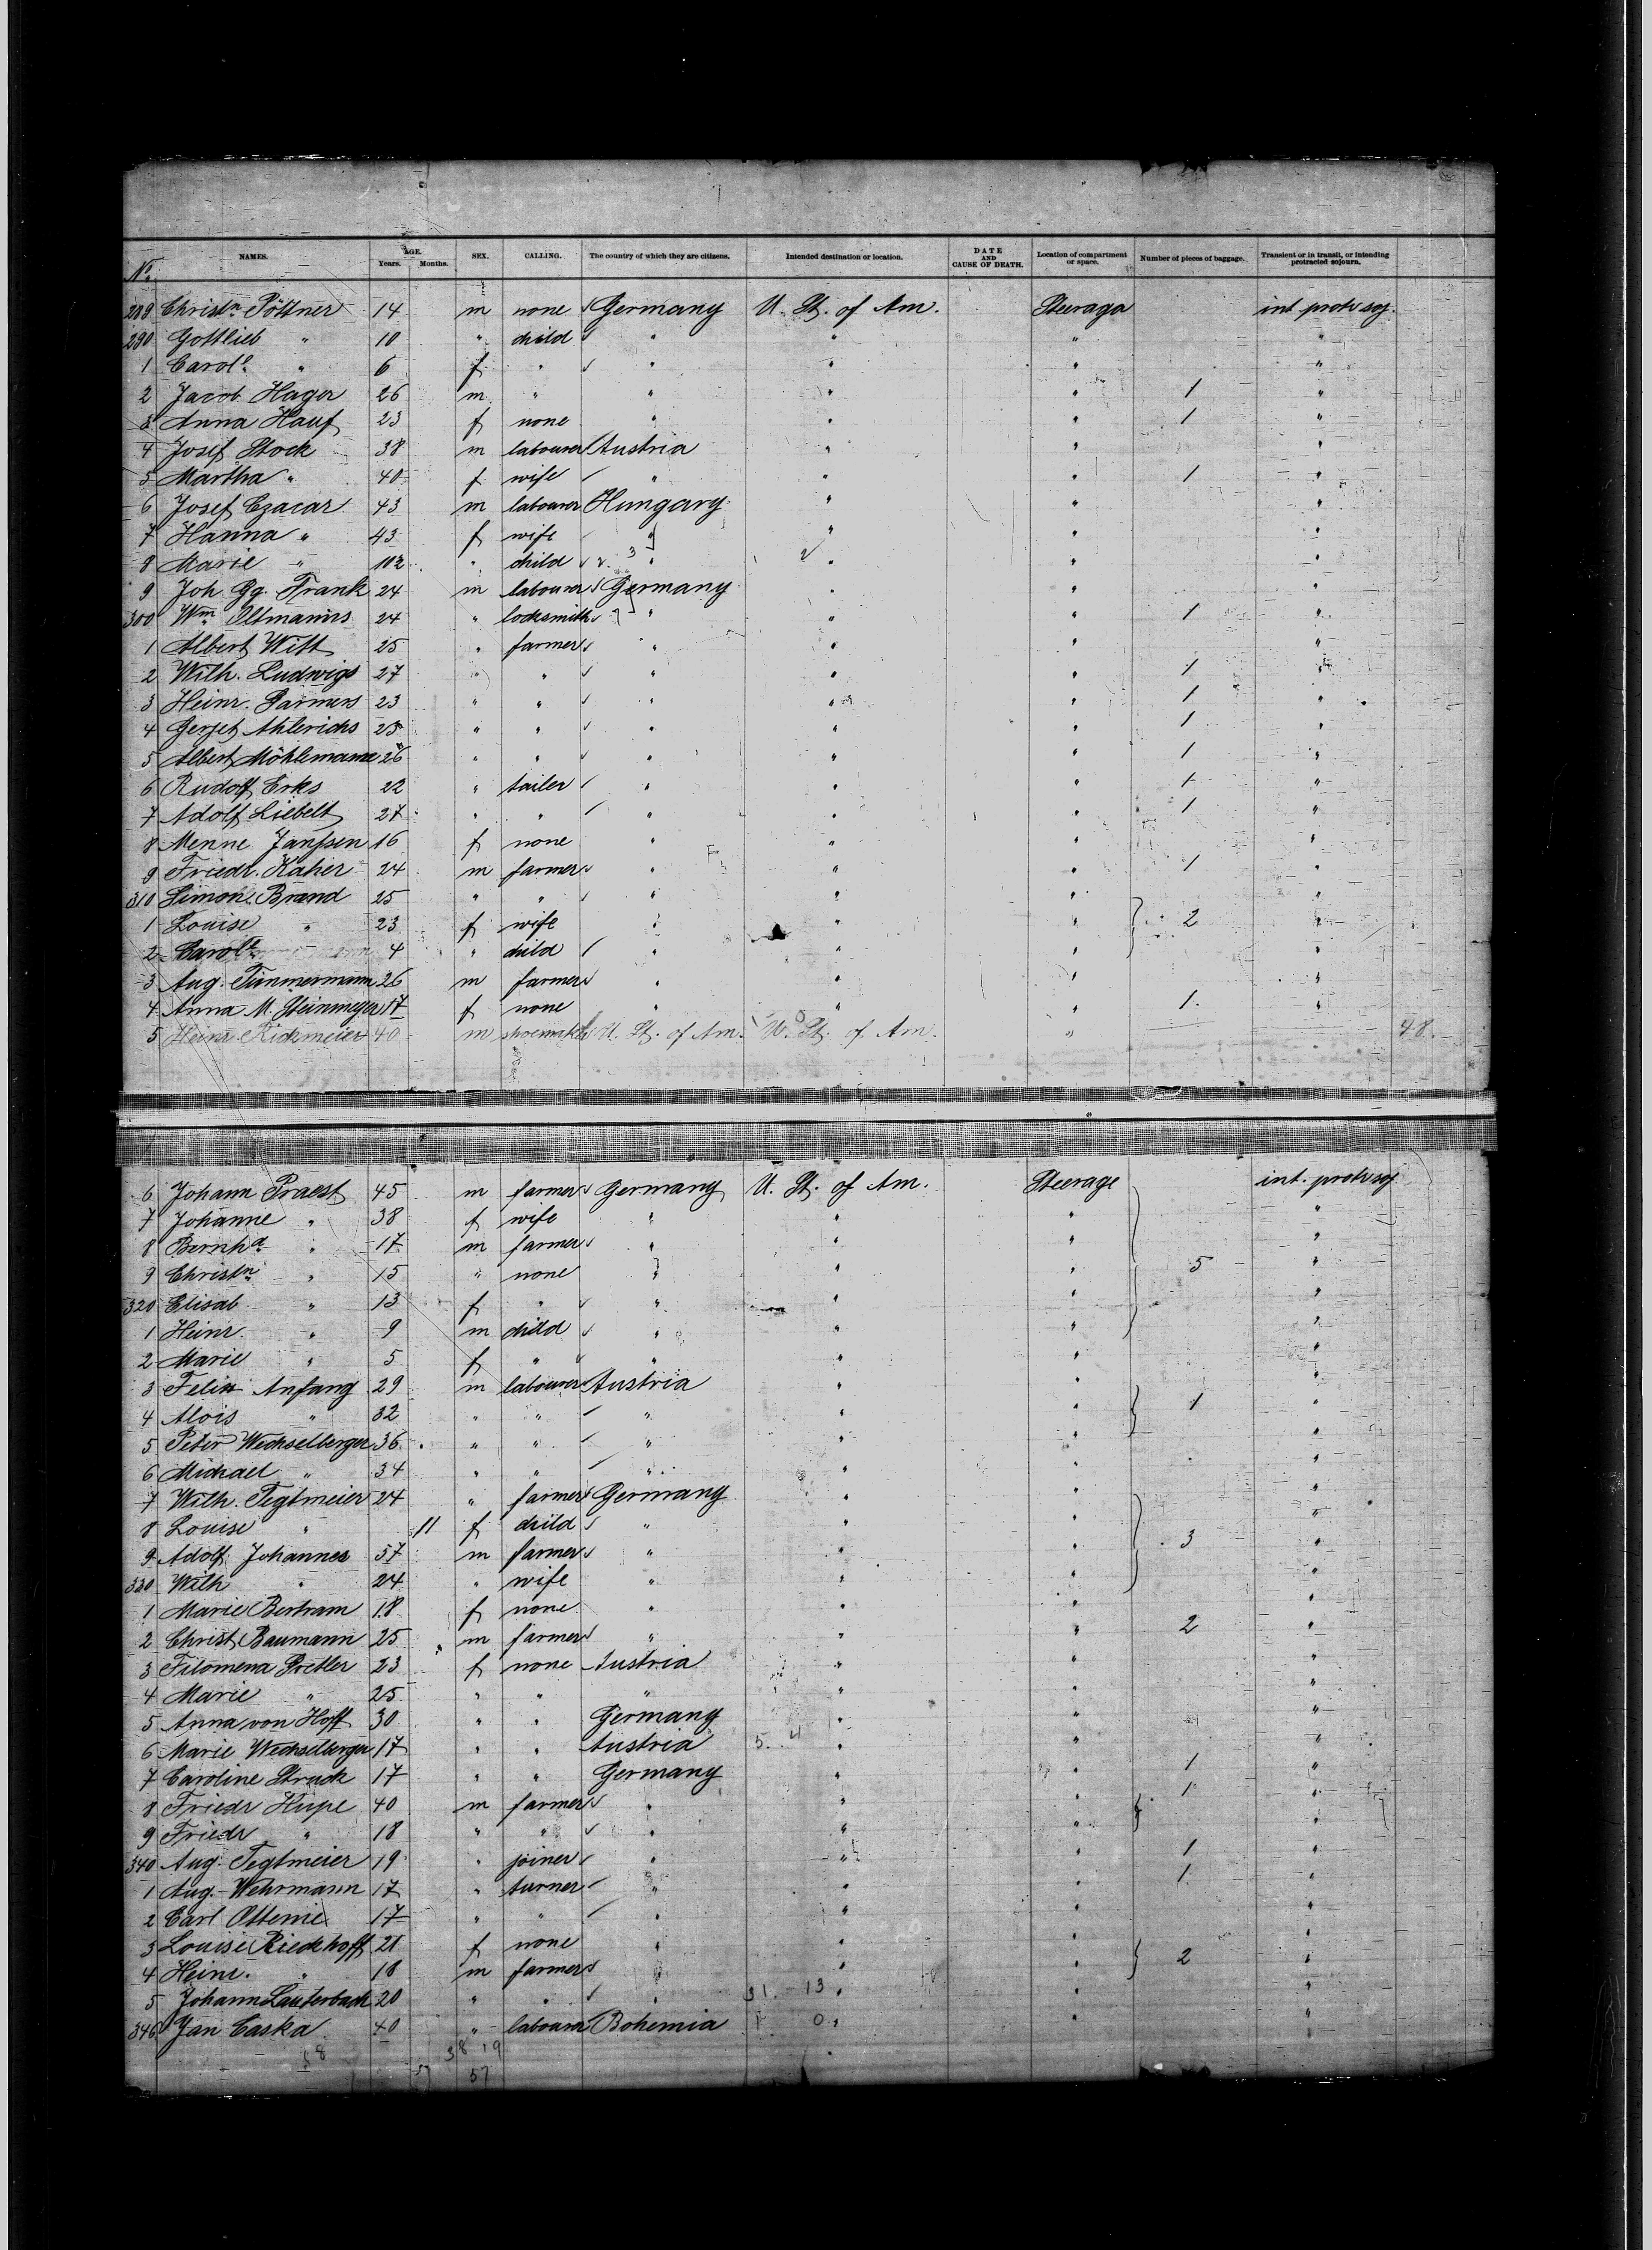 No. NAMES. AGE. Years. Months. SEX. CALLING. The country of which they are citizens. Intended destination or location. DATE AND CAUSE OF DEATH. Location of compartment or space. Number of pieces of baggage. Transient or in transit, or intending protracted sojourn.
289 Christn Pöttner 14 m none Germany U. St. of Am. Steerage int protr soj.
290 Gottlieb " 10 " child " " " "
1 Carole " 6 f " " " " "
2 Jacob Hager 26 m " " " " 1 "
3 Anna Hauf 23 f none " " " 1 "
4 Josef Stock 38 m labourer Austria " " "
5 Martha " 40 f wife " " " 1 "
6 Josef Czacar 43 m labourer Hungary " " "
7 Hanna " 43 f wife " " " "
8 Marie " " child " " " "
9 Joh. Gg. Frank 24 m labourer Germany " " "
300 Wm 24 " locksmith " " " 1 "
1 Albert Witt 25 " farmer " " " "
2 Wilh. Ludwigs 27 " " " " " 1 "
3 Heinr. 23 " " " " " 1 "
4 Gerjet Ahlerichs 25 " " " " " 1 "
5 Albert Möhlemann 26 " " " " " 1 "
6 Rudolf Erks 22 " tailer " " " 1 "
7 Adolf Liebelt 27 " " " " " 1 "
8 Menne Janssen 16 f none " " " "
9 Friedr. Kaher 24 m farmer " " " 1 "
310 Simon Brand 25 " " " " " "
1 Louise " 23 f wife " " " 2 "
2 Carole 4 " child " " " "
3 Aug. Timmermann 26 m farmer " " " "
4 Anna M. Steinmeyer 17 f none " " " 1 "
5 Heinr. Rickmeier 40 m shoemaker U. St. of Am. U. St. of Am. " 48.
6 Johann Praest 45 m farmer Germany U. St. of Am. Steerage int. protr soj
7 Johanne " 38 f wife " " " "
8 Bernhd " 17 m farmer " " " "
9 Christn " 15 " none " " " 5 "
320 Elisab. " 13 f " " " " "
1 Heinr. " 9 m child " " " "
2 Marie " 5 f " " " " "
3 Felix Anfang 29 m labourer Austria " " "
4 Alois " 32 " " " " " 1 "
5 Peter Wechselberger 36 " " " " " "
6 Michael " 34 " " " " " "
7 Wilh. Tegtmeier 24 " farmer Germany " " "
8 Louise " 11 f child " " " "
9 Adolf Johannes 57 m farmer " " " 3 "
330 Wilh " 24 " wife " " " "
1 Marie Bertram 18 f none " " " "
2 Christ. Baumann 25 m farmer " " " 2 "
3 Filomena 23 f none Austria " " "
4 Marie " 25 " " " " " "
5 Anna von Hoff 30 " " Germany " " "
6 Marie Wechselberger 17 " " Austria 5. 4 " " "
7 Caroline Struck 17 " " Germany " " 1 "
8 Friedr Hupe 40 m farmer " " " 1 "
9 Friedr " 18 " " " " " "
340 Aug. Tegtmeier 19 " joiner " " " 1 "
1 Aug. Wehrmann 17 " turner " " " 1 "
2 Carl Ottenie 17 " " " " " "
3 Louise Riedkhoff 21 f none " " " "
4 Heinr. " 18 m farmer " " " 2 "
5 Johann Lauterbach 20 " " " 31. 13 " " "
346 Jan Caska 40 " labourer Bohemia 1 0 " " "
58 38 19
57